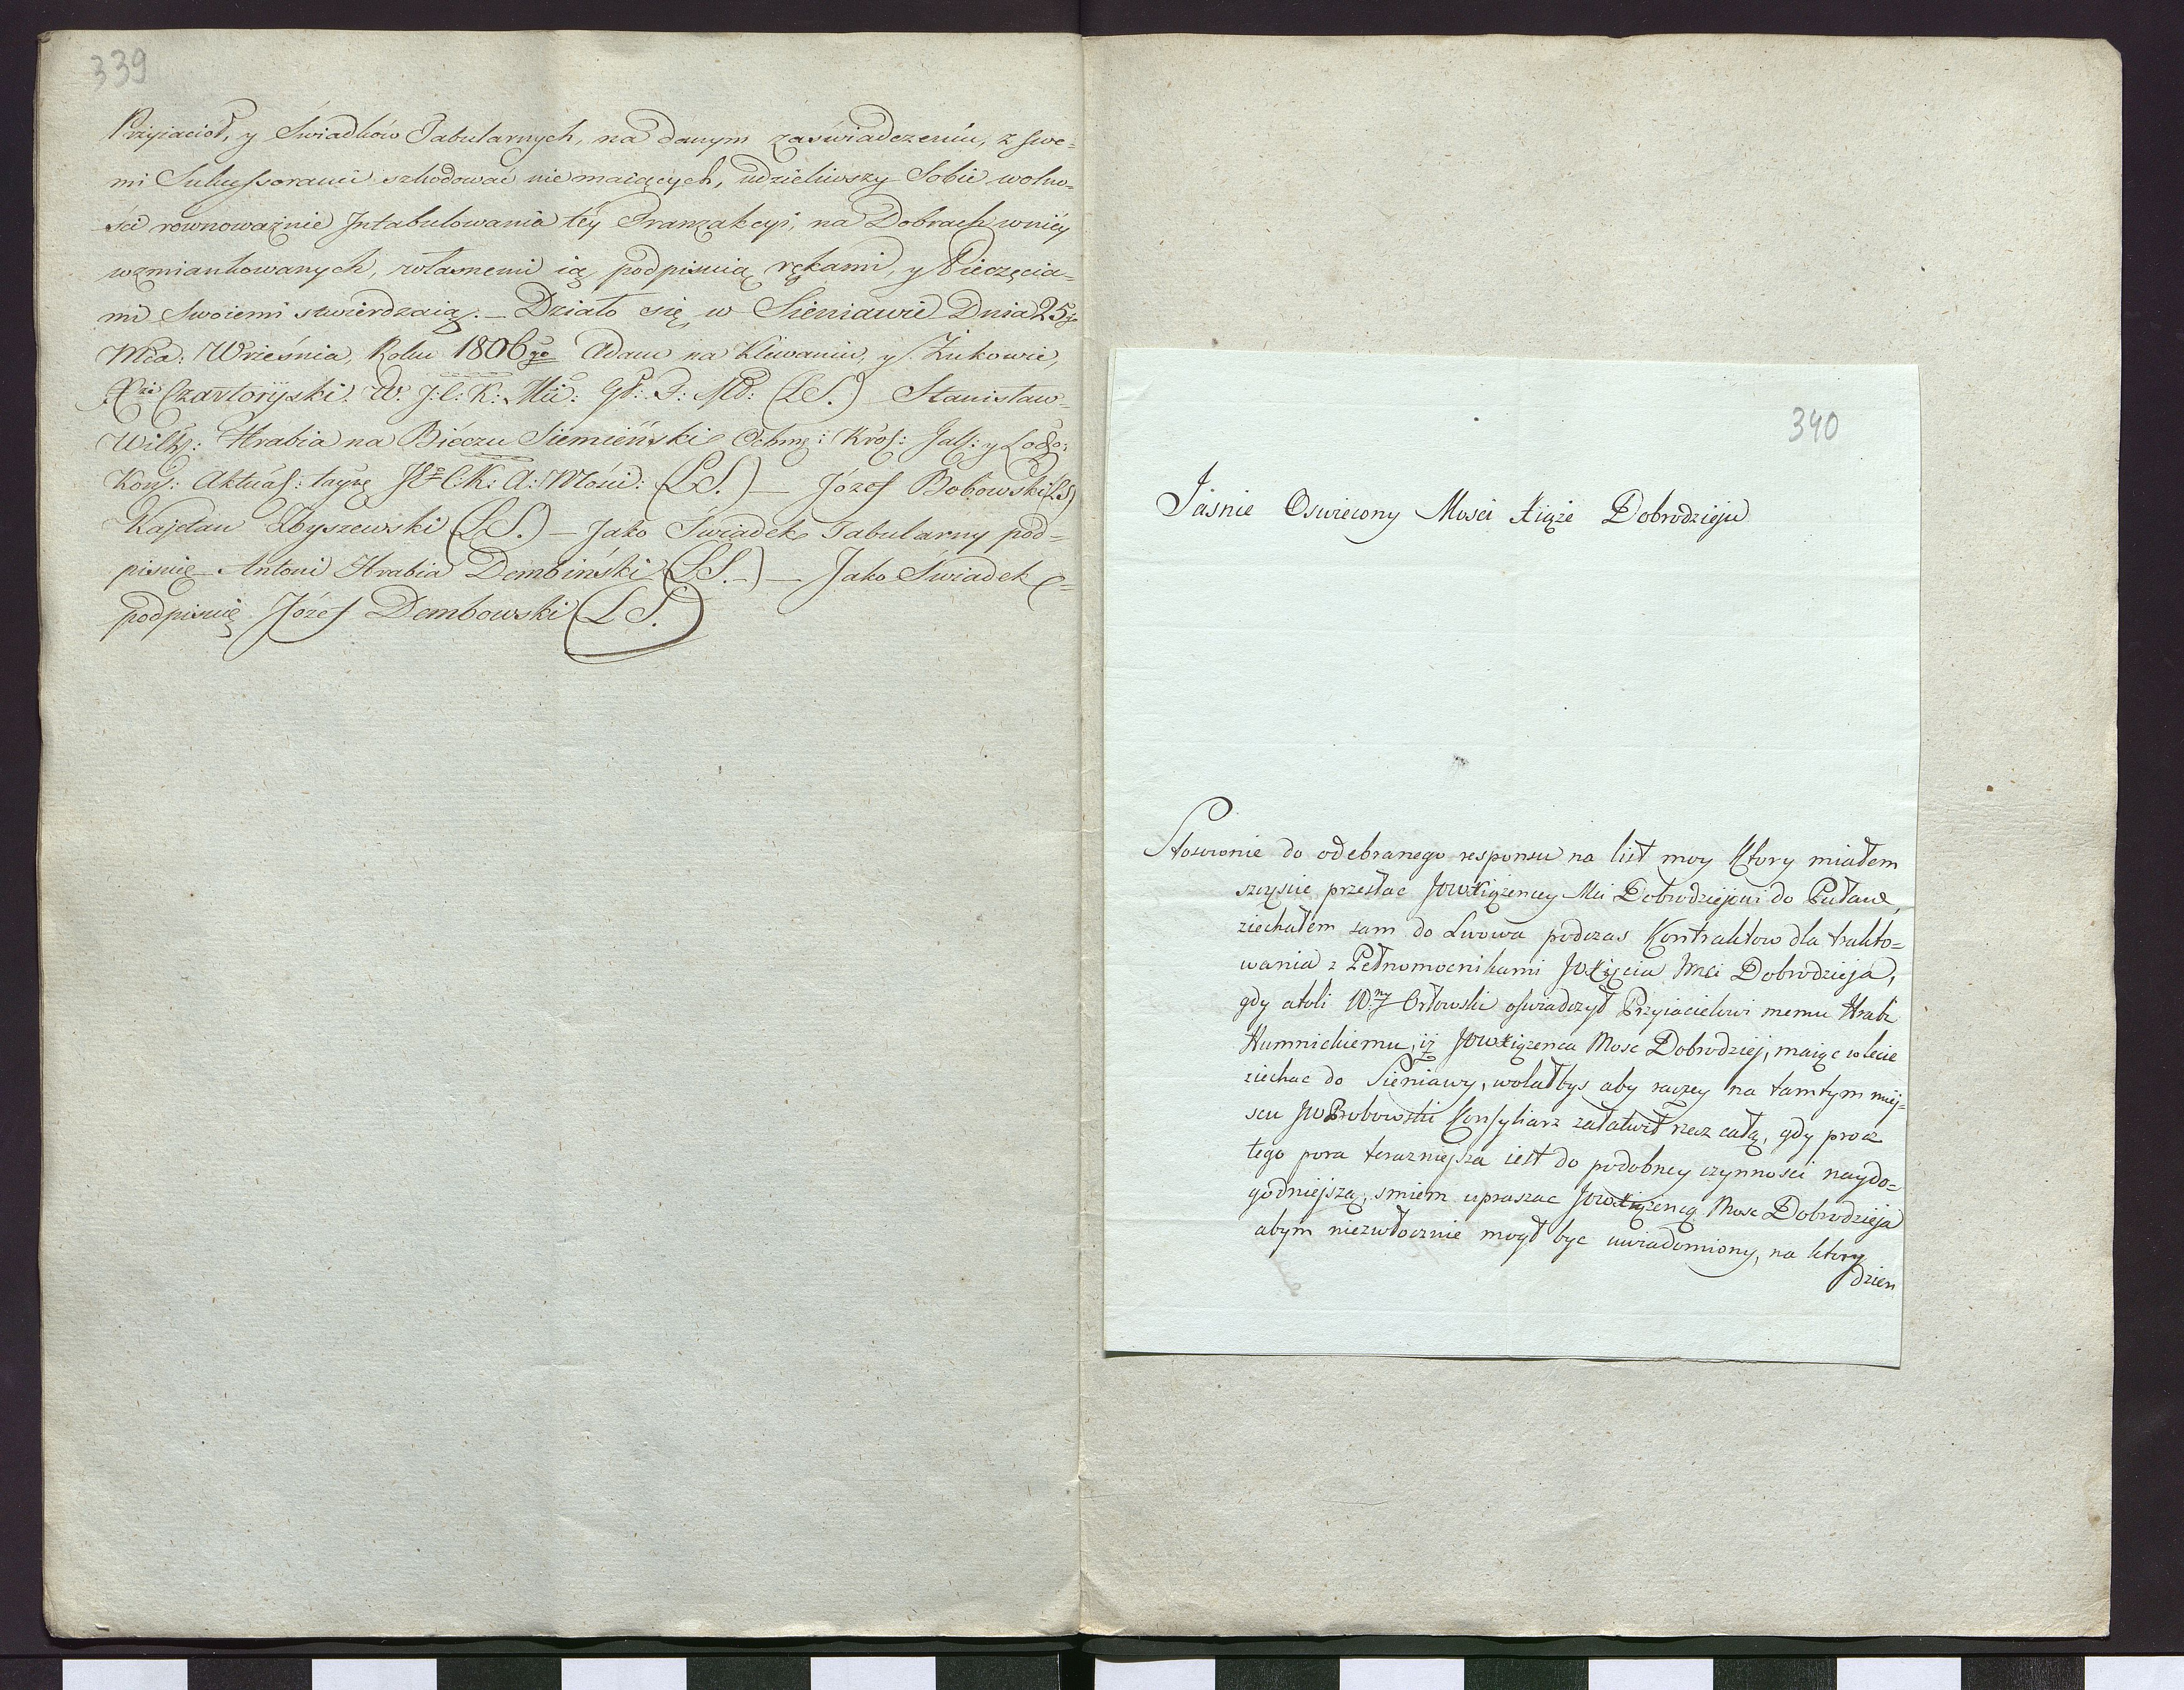 339
Przyiaciół, y Świadków Tabularnych, na danym zaświadczeniu, z swe=
mi Sukcessorami szkodować nie maiących, udzieliwszy Sobie wolno=
ści rownoważnie Jntabulowania téy Tranzakcyi, na Dobrach wniéy
wzmiankowanych, własnemi ią podpisuią rękami, y Pieczęcia=
mi Swoiemi stwierdzaią. – Działo się w Sieniawie Dnia 25go
Mca. Września, Roku 1806go Adam na Kléwaniu, y Żukowie,
Xże Czartoryski. W. J: C: K: Mci: G: F: M: (LS.) Stanisław
Wilh: Hrabia na Biéczu Siemieński Ochmę: Król: Jal: y Lodo:
Kons: Aktual: tayny C. K: A: Mości: (LS.) – Józef Bobowski (LS)
Kajetan Zbyszewski (LS.) – Jako Świadek Tabularny pod=
pisuię Antoni Hrabia Dembiński (LS.–) – Jako Świadek
podpisuię Józef Dembowski (LS.)
340
Jasnie Oswiecony Mosci Xiąże Dobrodzieju
Stosownie do odebranego responsu na list moy Ktory miałem
szczęscie przesłac JOW Xiążencey Mci Dobrodziejowi do Puław,
ziechałem sam do Lwowa podczas Kontraktow dla trakto=
wania z Pełnomocnikami JO Xięcia Mci Dobrodzieja,
gdy atoli W.ny Orłowski oswiadczył Przyiacielowi memu Hrabi
Humnickiemu, iż JOW Xiążenca Mosc Dobrodziej, maiąc w lecie
ziechac do Sieniawy, wolałbys aby raczey na tamtym miej=
scu JW Bobowski Konsyliarz załatwił rzecz całą, gdy procz
tego pora terazniejsza iest do podobney czynnosci naydo=
godniejszą, smiem upraszac JOW Xiążencą Mosc Dobrodzieja
abym niezwłocznie mogł byc uwiadomiony, na ktory
dzien